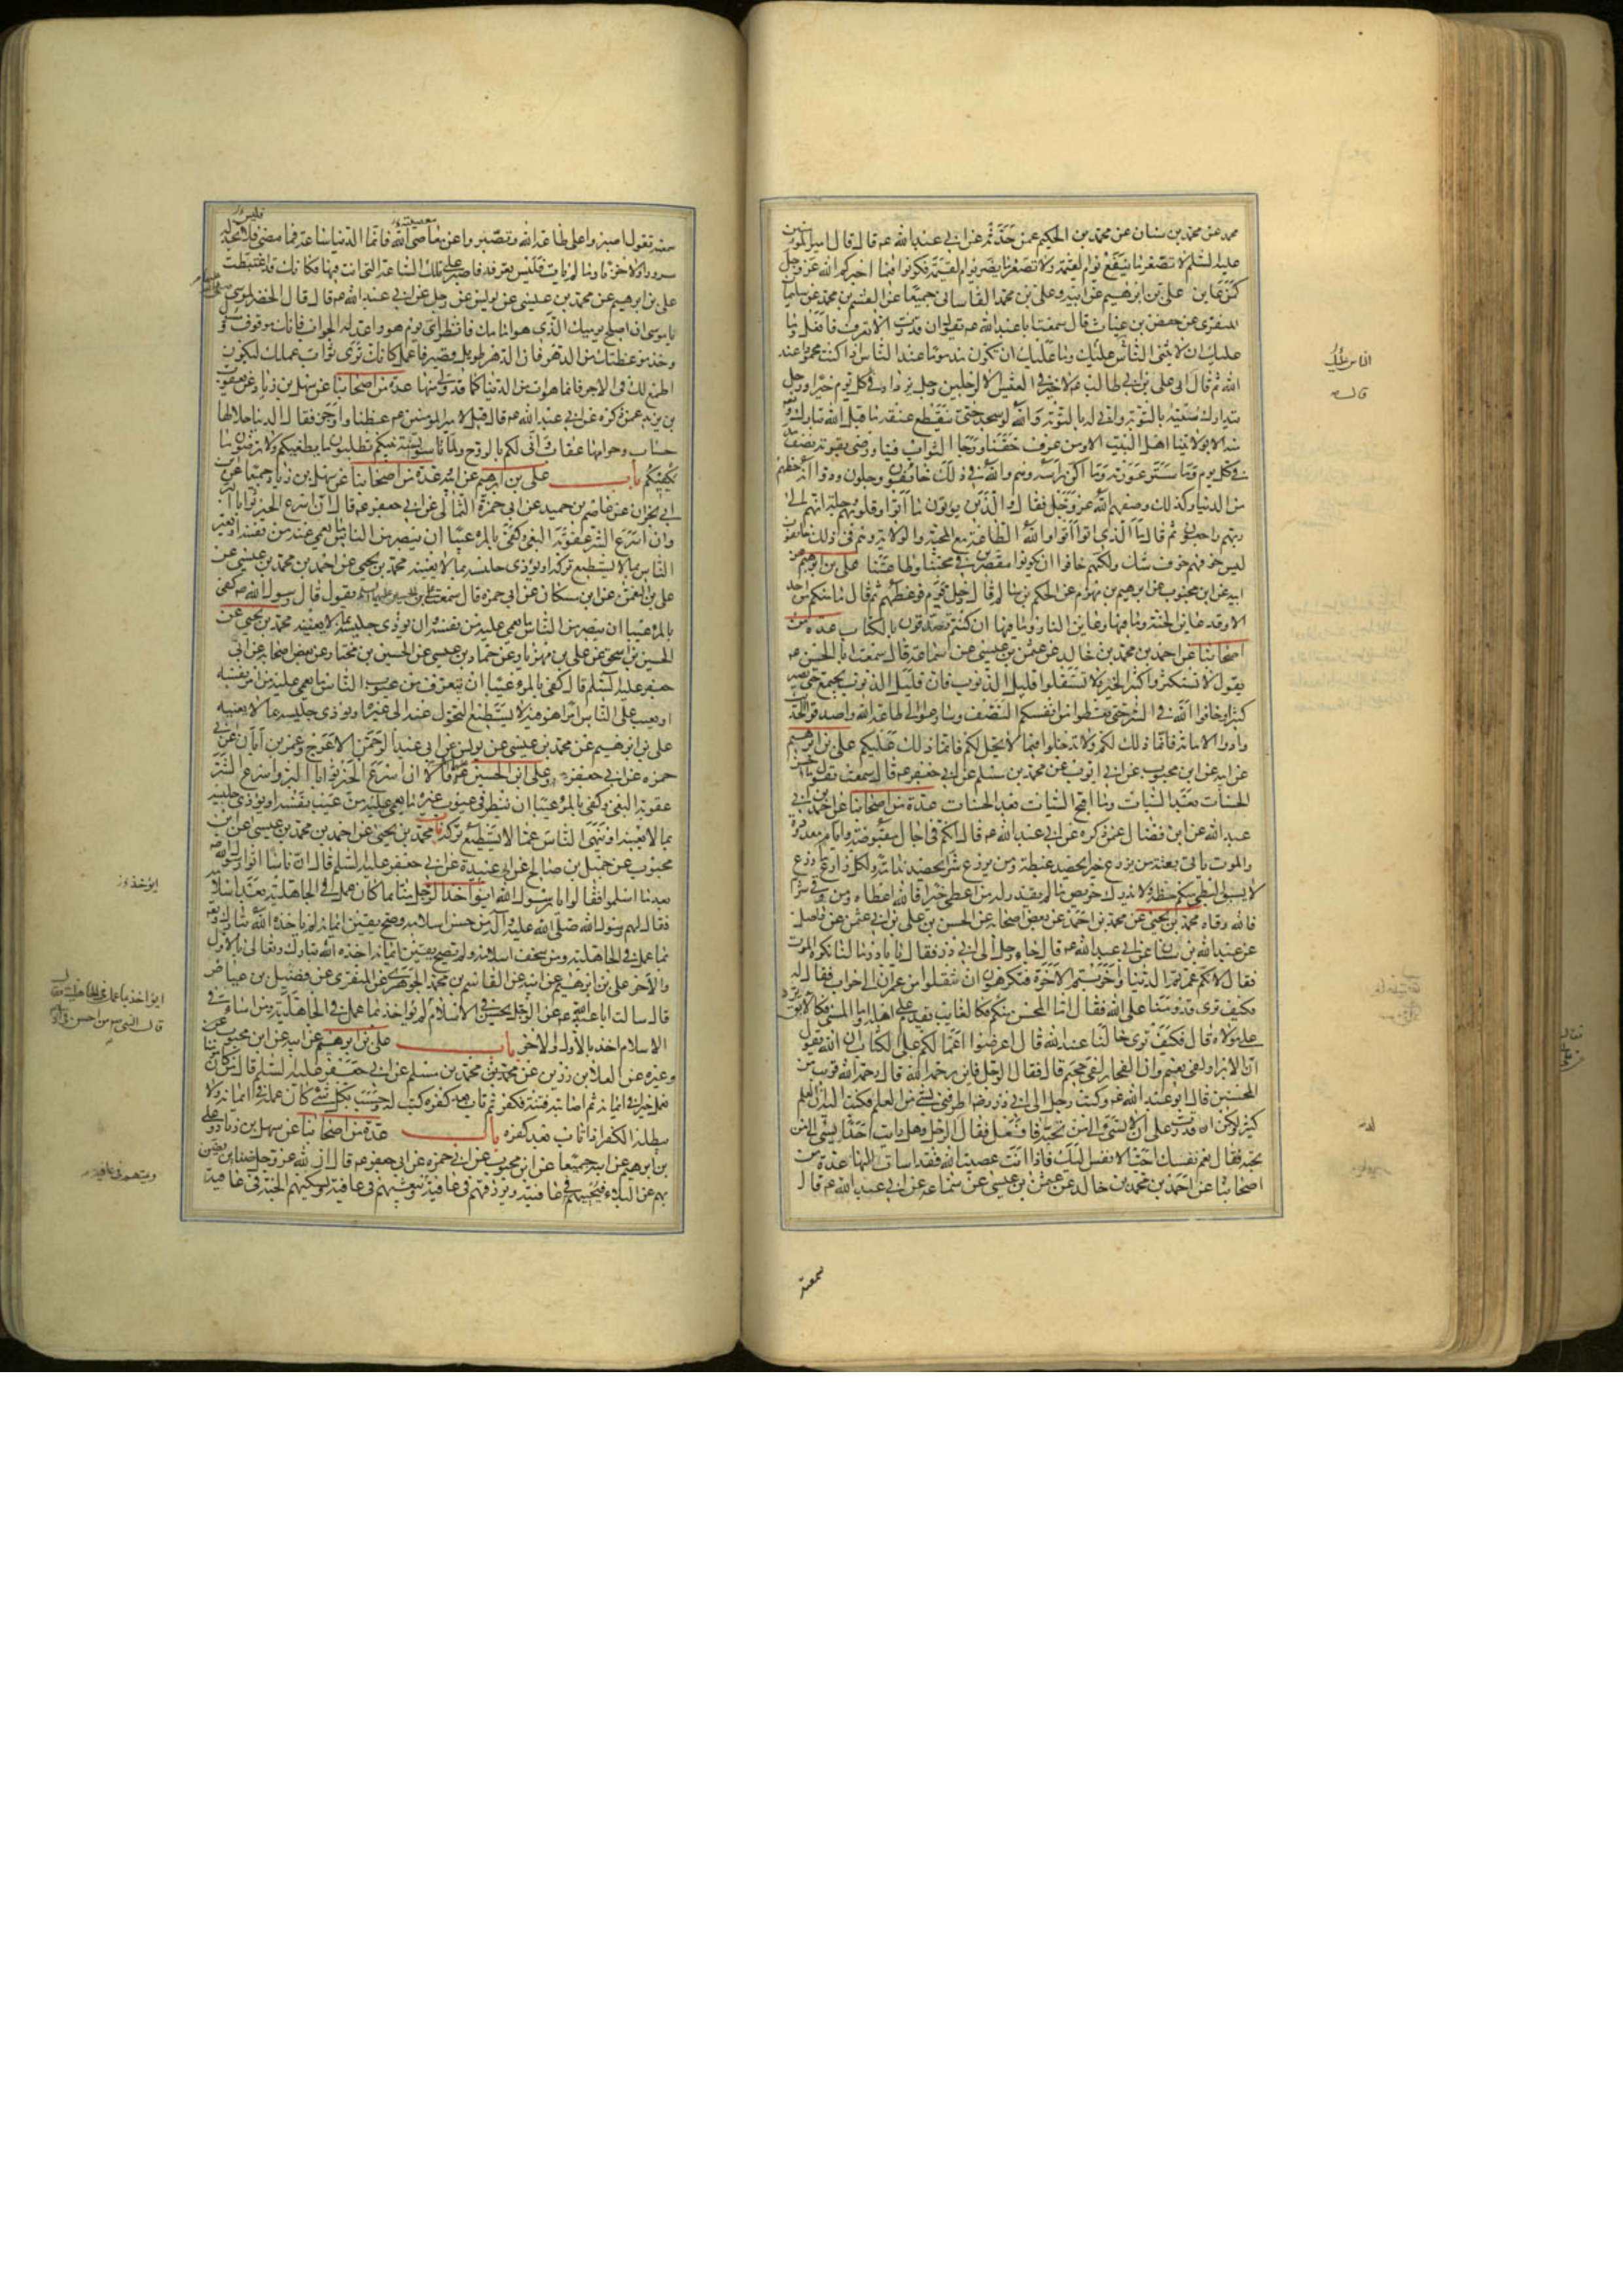 محمد عن محمد بن سنان عن محمد بن الحكيم عمن حدثه عن ابي عبدالله عه قال قال امير المؤمنين
عليه السلم لا تصغر ما ينفع يوم القيمة ولا تصغر ما يضر يوم القيمة فكونوا فيما اخبركم الله عز وجل
كمن عاين علي بن ابرهيم عن ابيه وعلي بن محمد القاساني جميعا عن القسم بن محمد عن سليمان
المنقري عن حفص بن غياث قال سمعت ابا عبدالله عه يقول ان قدرت الا تعرف فافعل وما
عليك ان لا يثني الناس عليك وما عليك ان تكون مذموما عند الناس اذا كنت محمودا عند
الله ثم قال ابي علي بن ابي طالب عه لا خير في العيش الا لرجلين رجل يزداد في كل يوم خيرا ورجل
يتدارك منيته بالتوبة واني له بالتوبة والله لو سجد حتى ينقطع عنقه ما قبل الله تبارك وتعه
منه الا بولايتنا اهل البيت الا ومن عرف حقنا ورجا الثواب فينا ورضي بقوته نصف مد
في كل يوم وما ستر عورته وما اكن راسه وهم والله في ذلك خائفون وجلون ودوا انه حظهم
من الدنيا وكذلك وصفهم الله عز وجل فقال والذين يؤتون ما آتوا وقلوبهم وجلة انهم الى
ربهم راجعون ثم قال ما الذي اتوا اتوا والله الطاعة مع المحبة والولاية وهم في ذلك خائفون
ليس خوفهم خوف شك ولكنهم خافوا ان يكونوا مقصرين في محبتنا وطاعتنا علي بن ابرهيم عن
ابيه عن ابن محبوب عن ابرهيم بن مهزم عن الحكم بن سالم قال دخل قوم فوعظهم ثم قال ما منكم من احد
الا وقد عاين الجنة وما فيها وعاين النار وما فيها ان كنتم تصدقون بالكتاب عدة من
اصحابنا عن احمد بن محمد بن خالد عن عثمن بن عيسى عن سماعة قال سمعت ابا الحسن عه
يقول لا تستكثروا كثير الخير ولا تستقلوا قليل الذنوب فان قليل الذنوب يجتمع حتى يصير
كثيرا وخافوا الله في السر حتى تعطوا من انفسكم النصف وسارعوا الى طاعة الله واصدقوا الحديث
وادوا الامانة فانما ذلك لكم ولا تدخلوا فيما لا يحل لكم فانما ذلك عليكم علي بن ابرهيم
عن ابيه عن ابن محبوب عن ابي ايوب عن محمد بن مسلم عن ابي جعفر عه قال سمعته يقول ما احسن
الحسنات بعد السيئات وما اقبح السيئات بعد الحسنات عدة من اصحابنا عن احمد بن ابي
عبدالله عن ابن فضال عمن ذكره عن ابي عبدالله عه قال انكم في اجال مقبوضة وايام معدودة
والموت ياتي بغتة من يزرع خيرا يحصد غبطة ومن يزرع شرا يحصد ندامة ولكل زارع ما زرع
لا يسبق البطيء منكم حظه ولا يدرك حريص ما لم يقدر له من اعطي خيرا فالله اعطاه ومن وقي شرا
فالله وقاه محمد بن يحيى عن محمد بن احمد عن بعض اصحابه عن الحسن بن علي بن ابي عثمن عن واصل
عن عبدالله بن سنان عن ابي عبدالله عه قال جاء رجل الى ابي ذر فقال يا باذر ما لنا نكره الموت
فقال لانكم عمرتم الدنيا واخربتم الآخرة فتكرهون ان تنقلوا من عمران الى خراب فقال له
فكيف ترى قدومنا على الله فقال اما المحسن منكم فكالغايب يقدم على اهله واما المسيء فكالآبق يرد
على مولاه قال فكيف ترى حالنا عند الله قال اعرضوا اعمالكم على الكتاب ان الله يقول
ان الابرار لفي نعيم وان الفجار لفي جحيم قال فقال الرجل فاين رحمة الله قال رحمة الله قريب من
المحسنين قال ابو عبدالله عه وكتب رجل الى ابي ذر رضه اطرفني بشيء من العلم فكتب اليه ان العلم
كثير ولكن ان قدرت على ان لا تسيء الى من تحبه فافعل فقال الرجل وهل رايت احدا يسيء الى من
يحبه فقال نعم نفسك احب الانفس اليك فاذا انت عصيت الله فقد اسات اليها عدة من
اصحابنا عن احمد بن محمد بن خالد عن عثمن بن عيسى عن سماعة عن ابي عبدالله عه قال
سمعته
قال له
سمعته يقول اصبروا على طاعة الله وتصبروا عن معاصي الله فانما الدنيا ساعة فما مضى فلا تجد له
سرورا ولا حزنا وما لم يات فليس تعرفه فاصبر على تلك الساعة التي انت فيها فكانك قد اغتبطت
علي بن ابرهيم عن محمد بن عيسى عن يونس عن رجل عن ابي عبدالله عه قال قال الخضر لموسى
يا موسى ان اصلح يوميك الذي هو امامك فانظر اي يوم هو واعد له الجواب فانك موقوف ومسؤل
وخذ موعظتك من الدهر فان الدهر طويل وقصير فاعمل كانك ترى ثواب عملك ليكون
اطمع لك في الاجر فانما هو ات من الدنيا كما قد ولى منها عدة من اصحابنا عن سهل بن زياد عن يعقوب
بن يزيد عمن ذكره عن ابي عبدالله عه قال قيل لامير المؤمنين عه عظنا واوجز فقال الدنيا حلالها
حساب وحرامها عقاب واني لكم بالروح ولما تاسوا بسنة نبيكم تطلبون ما يطغيكم ولا ترضون ما
يكفيكم باب علي بن ابرهيم عن ابيه عدة من اصحابنا عن سهل بن زياد جميعا عن
ابي نجران عن عاصم بن حميد عن ابي حمزة الثمالي عن ابي جعفر عه قال ان اسرع الخير ثوابا البر
وان اسرع الشر عقوبة البغي وكفى بالمرء عيبا ان يبصر من الناس ما يعمى عنه من نفسه او يعير
الناس بما لا يستطيع تركه او يؤذي جليسه بما لا يعنيه محمد بن يحيى عن احمد بن محمد بن عيسى عن
علي بن النعمن عن ابن مسكان عن ابي حمزة قال سمعت علي بن الحسين عليهما السلم يقول قال رسول الله صه كفى
بالمرء عيبا ان يبصر من الناس ما يعمى عليه من نفسه وان يؤذي جليسه بما لا يعنيه محمد بن يحيى عن
الحسين بن اسحق عن علي بن مهزيار عن حماد بن عيسى عن الحسين بن مختار عن بعض اصحابه عن ابي
جعفر عليه السلم قال كفى بالمرء عيبا ان يتعرف من عيوب الناس ما يعمى عليه من امر نفسه
او يعيب على الناس امرا هو فيه لا يستطيع التحول عنه الى غيره او يؤذي جليسه بما لا يعنيه
علي بن ابرهيم عن محمد بن عيسى عن يونس عن ابي عبد الرحمن الاعرج وعمر بن ابان عن ابي
حمزة عن ابي جعفر وعلي ابن الحسين قالا ان اسرع الخير ثوابا البر واسرع الشر
عقوبة البغي وكفى بالمرء عيبا ان ينظر في عيوب غيره ما يعمى عليه من عيب نفسه او يؤذي جليسه
بما لا يعنيه او ينهى الناس عما لا يستطيع تركه باب محمد بن يحيى عن احمد بن محمد بن عيسى عن ابن
محبوب عن جميل بن صالح عن ابي عبيدة عن ابي جعفر عليه السلم قال ان ناسا اتوا رسول الله صه
بعد ما اسلموا فقالوا يا رسول الله ايؤاخذ الرجل منا بما كان عمل في الجاهلية بعد اسلامه
فقال لهم رسول الله صلى الله عليه واله من حسن اسلامه وصح يقين ايمانه لم ياخذه الله تبارك وتعه
بما عمل في الجاهلية ومن سخف اسلامه ولم يصح يقين ايمانه اخذه الله تبارك وتعالى بالاول
والآخر علي بن ابرهيم عن ابيه عن القاسم بن محمد الجوهري عن المنقري عن فضيل بن عياض
قال سالت ابا عبدالله عه عن الرجل يحسن في الاسلام ايؤاخذ بما عمل في الجاهلية ومن اساء في
الاسلام اخذ بالاول والآخر باب علي بن ابرهيم عن ابيه عن ابن محبوب عن
وغيره عن العلاء بن رزين عن محمد بن مسلم عن ابي جعفر عليه السلم قال من كان مؤمنا
فعمل خيرا في ايمانه ثم اصابته فتنة فكفر ثم تاب بعد كفره كتب له وحسب بكل شيء كان عمله في ايمانه ولا
يبطله الكفر اذا تاب بعد كفره باب عدة من اصحابنا عن سهل بن زياد وعلي
بن ابرهيم عن ابيه جميعا عن ابن محبوب عن ابي حمزة عن ابي جعفر عه قال ان لله عز وجل ضنائن يضن
بهم عن البلاء فيحييهم في عافية ويرزقهم في عافية ويميتهم في عافية ويبعثهم في عافية ويسكنهم الجنة في عافية